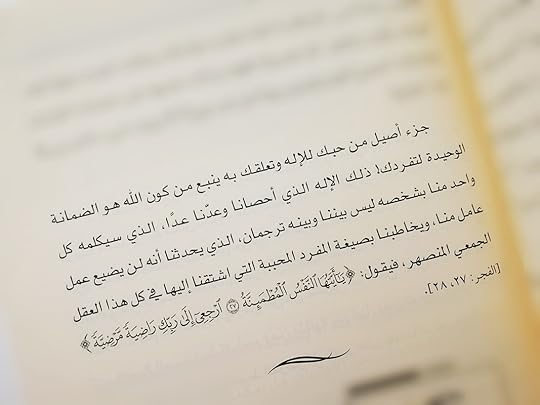 جزء أصيل من حبك للإله وتعلقك به ينبع من كون الله هو الضمانة
الوحيدة لتفردك! ذلك الإله الذي أحصانا وعدّنا عدًا، الذي سيكلمه كل
واحد منا بشخصه ليس بيننا وبينه ترجمان، الذي يحدثنا أنه لن يضيع عمل
عامل منا، ويخاطبنا بصيغة المفرد المحببة التي اشتقنا إليها في كل هذا العقل
الجمعي المنصهر، فيقول: ﴿يَٰٓأَيَّتُهَا ٱلنَّفۡسُ ٱلۡمُطۡمَئِنَّةُ ٢٧ ٱرۡجِعِيٓ إِلَىٰ رَبِّكِ رَاضِيَةٗ مَّرۡضِيَّةٗ﴾
[الفجر: ٢٧، ٢٨].